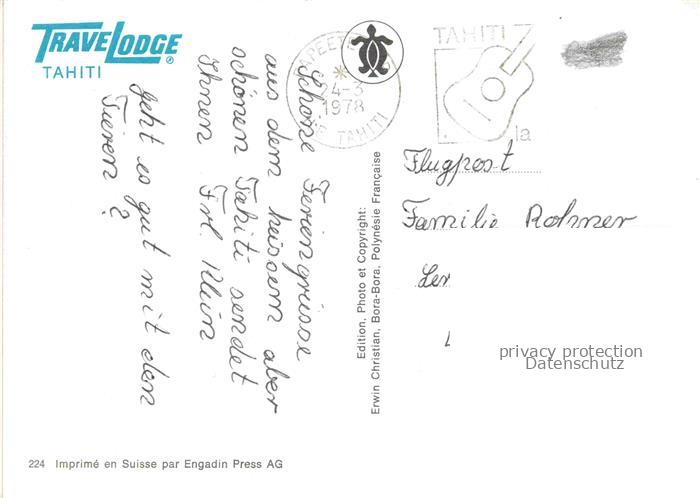 TRAVELODGE®
TAHITI
PAPEETE
24-3
1978
TAHITI
TAHITI
la
Schöne Feriengrüsse
aus dem heissem aber
schönen Tahiti sendet
Ihnen Frl. Klein
Geht es gut mit den
Tieren ?
Edition, Photo et Copyright:
Erwin Christian, Bora-Bora, Polynésie Française
Flugpost
Familie Rohner
privacy protection
Datenschutz
224 Imprimé en Suisse par Engadin Press AG